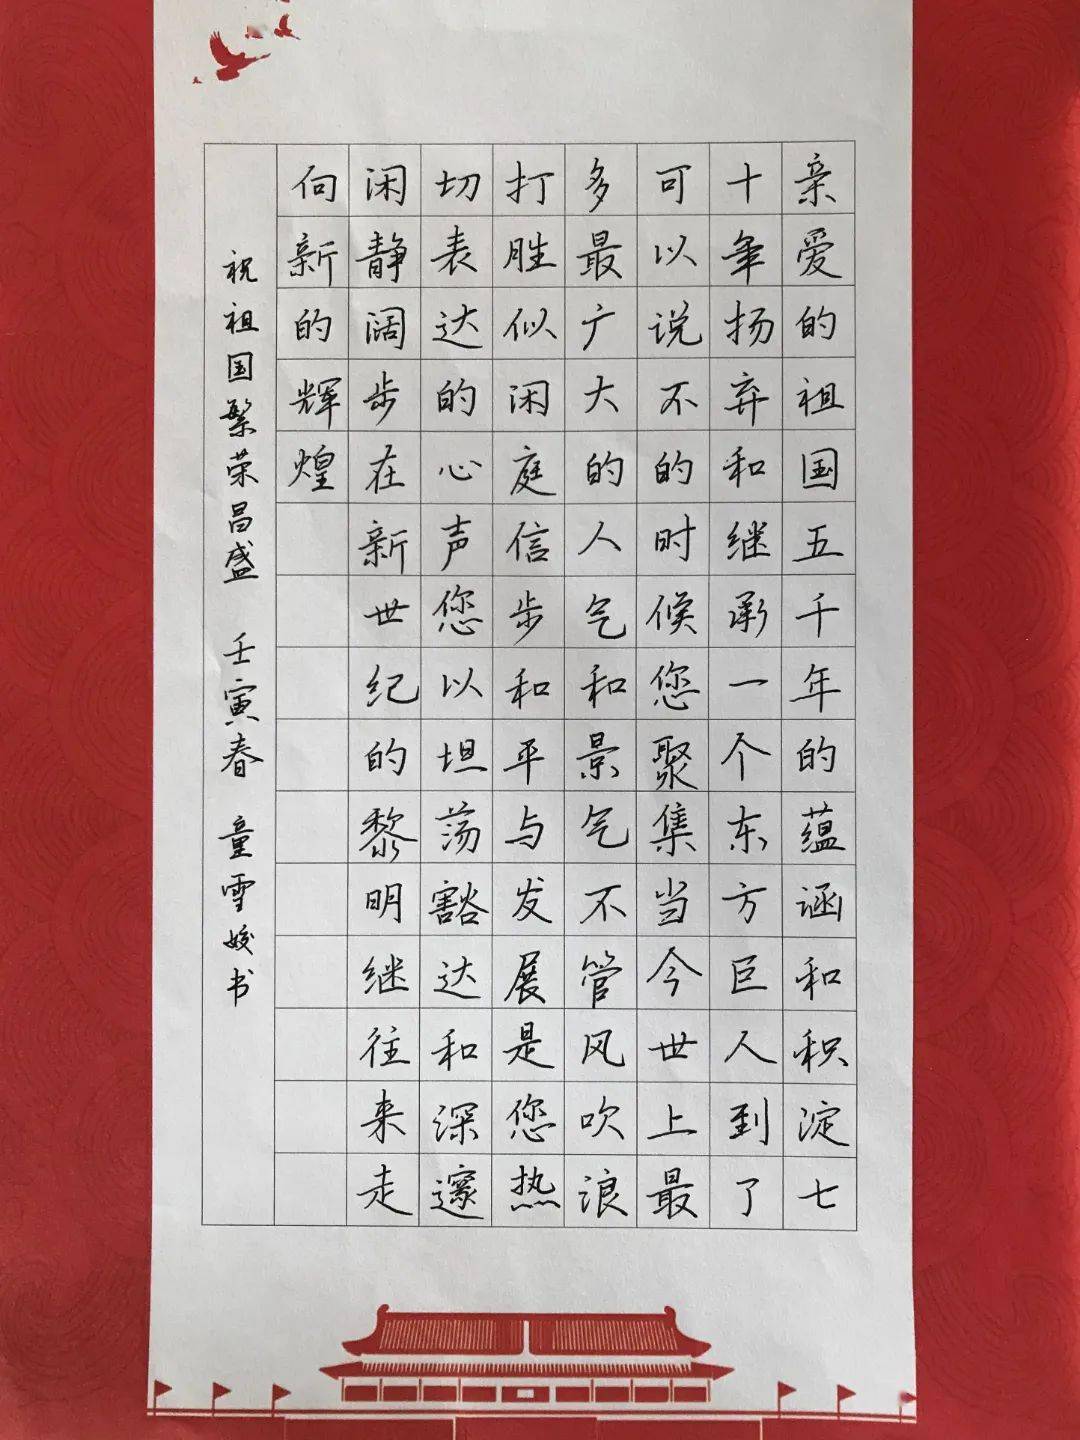 亲爱的祖国五千年的蕴涵和积淀七
十年扬弃和继承一个东方巨人到了
可以说不的时候您聚集当今世上最
多最广大的人气和景气不管风吹浪
打胜似闲庭信步和平与发展是您热
切表达的心声您以坦荡豁达和深邃
闲静阔步在新世纪的黎明继往来走
向新的辉煌
祝祖国繁荣昌盛 壬寅春 童雪姣书